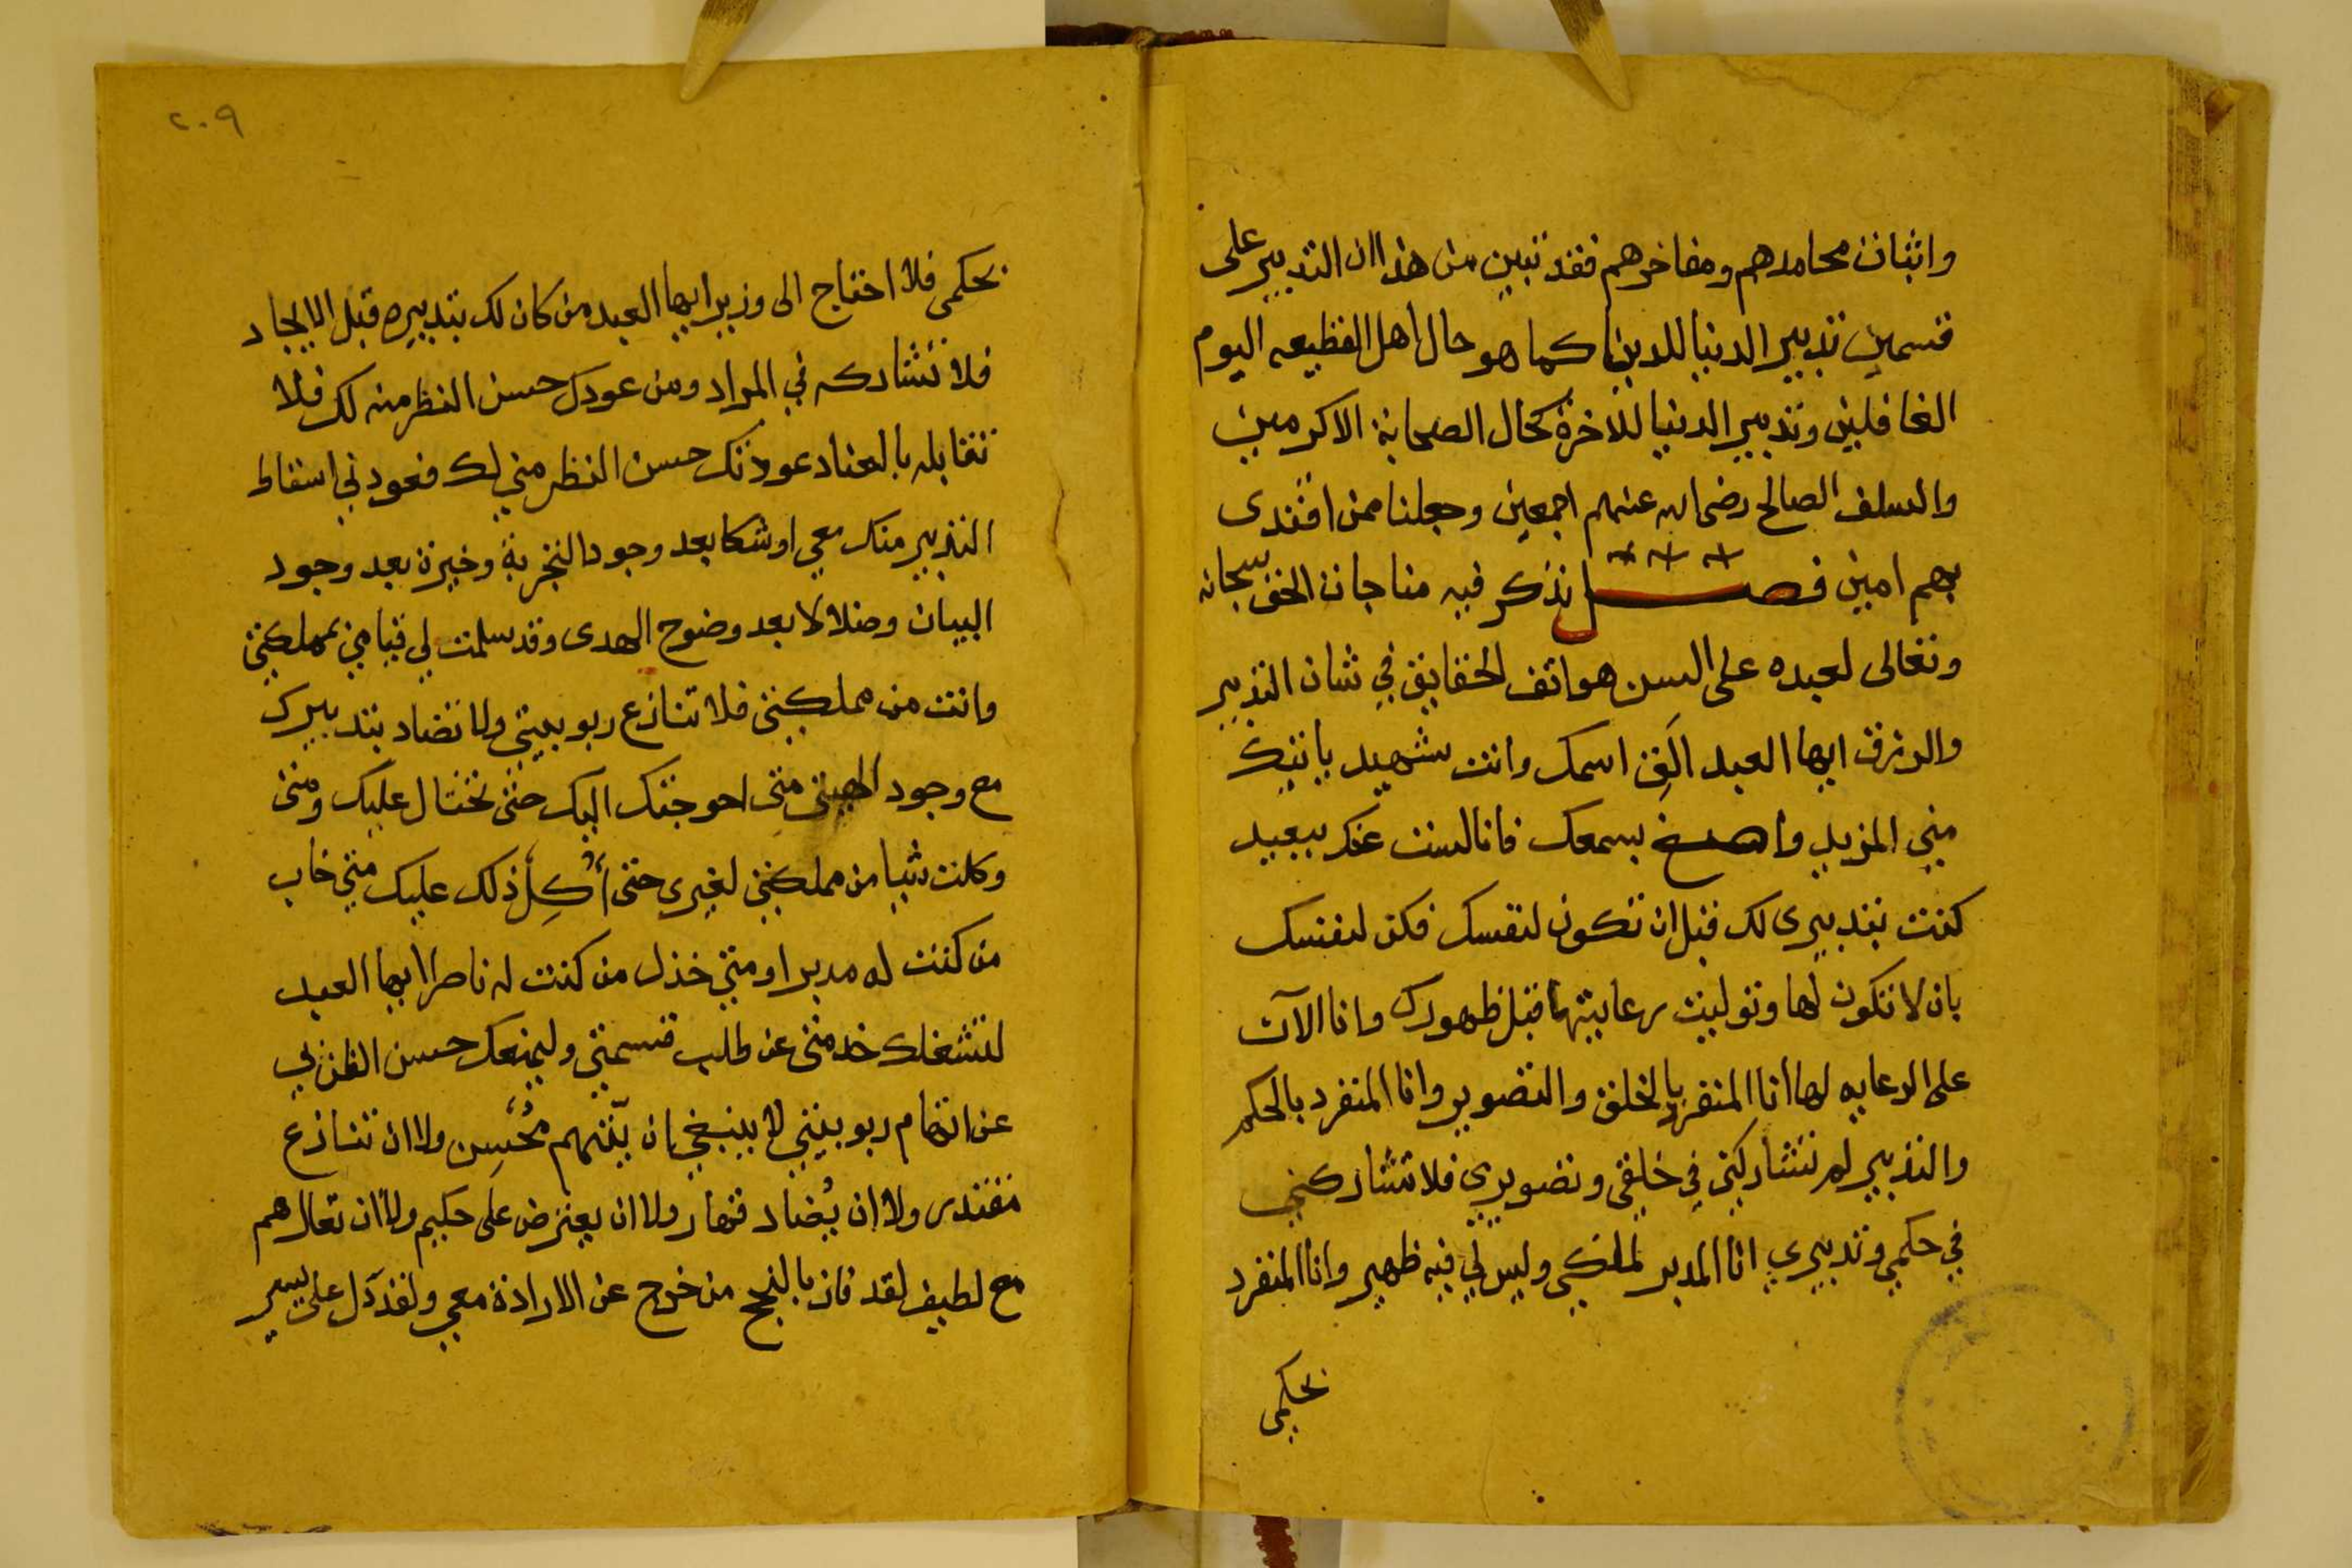 واثبات محامدهم ومفاخرهم فقد تبين من هذا ان التدبير على
قسمين تدبير الدنيا للدنيا كما هو حال اهل القطيعه اليوم
الغافلين وتدبير الدنيا للاخرة كحال الصحابة الاكرمين
والسلف الصالح رضى الله عنهم اجمعين وجعلنا ممن اقتدى
بهم امين فصل نذكر فيه مناجات الحق سبحانه
وتعالى لعبده على السن هواتف الحقايق في شان التدبير
والرزق ايها العبد الق اسمك وانت شهيد ياتيك
مني المزيد واصغ بسمعك فانا لست عنك ببعيد
كنت بتدبيرى لك قبل ان تكون لنفسك فكن لنفسك
بان لا تكون لها وتوليت رعايتها قبل ظهورك وانا الآن
على الرعايه لها انا المنفرد بالخلق والتصوير وانا المنفرد بالحكم
والتدبير لم تشاركني في خلقي وتصويري فلا تشاركني
في حكمي وتدبيري انا المدبر لملكي وليس لي فيه ظهير وانا المنفرد
بحكمي
٢٠٩
بحكمى فلا احتاج الى وزير ايها العبد من كان لك بتدبيره قبل الايجاد
فلا تشاركه في المراد ومن عودك حسن النظر منه لك فلا
تقابله بالعناد عودتك حسن النظر مني لك فعودني اسقاط
التدبير منك معي اوشكا بعد وجود التجربة وخيرة بعد وجود
البيان وضلالا بعد وضوح الهدى وقد سلمت لي قيامي بمملكتي
وانت من مملكتي فلا تنازع ربوبيتي ولا تضاد بتدبيرك
مع وجود الهيتى متى احوجتك اليك حتى تحتال عليك ومتى
وكلت شيا من مملكتي لغيرى حتى أَكِلُ ذلك عليك متي خاب
من كنت له مدبرا ومتي خذل من كنت له ناصرا ايها العبد
لتشغلك خدمتى عن طلب قسمتي وليمنعك حسن الظن بي
عن اتهام ربوبيتي لا ينبغي ان يتهم محسن ولا ان تنازع
مقتدر ولا ان يُضاد قهار ولا ان يعترض على حكيم ولا ان تعال هم
مع لطيف لقد فاز بالنجح من خرج عن الارادة معي ولقد دل على يسير